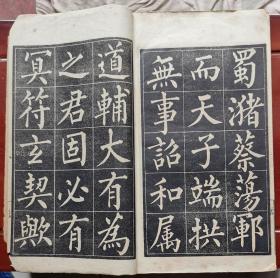 蜀潴蔡蕩鄆
而天子端拱
無事詔和属
道輔大有為
之君固必有
冥符玄契歟